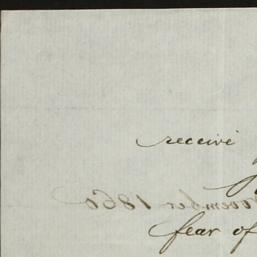 receive
November 1860
fear of